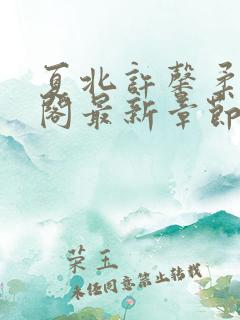 夏北許馨柔
閣最新章節
荣玉
未经同意禁止转载